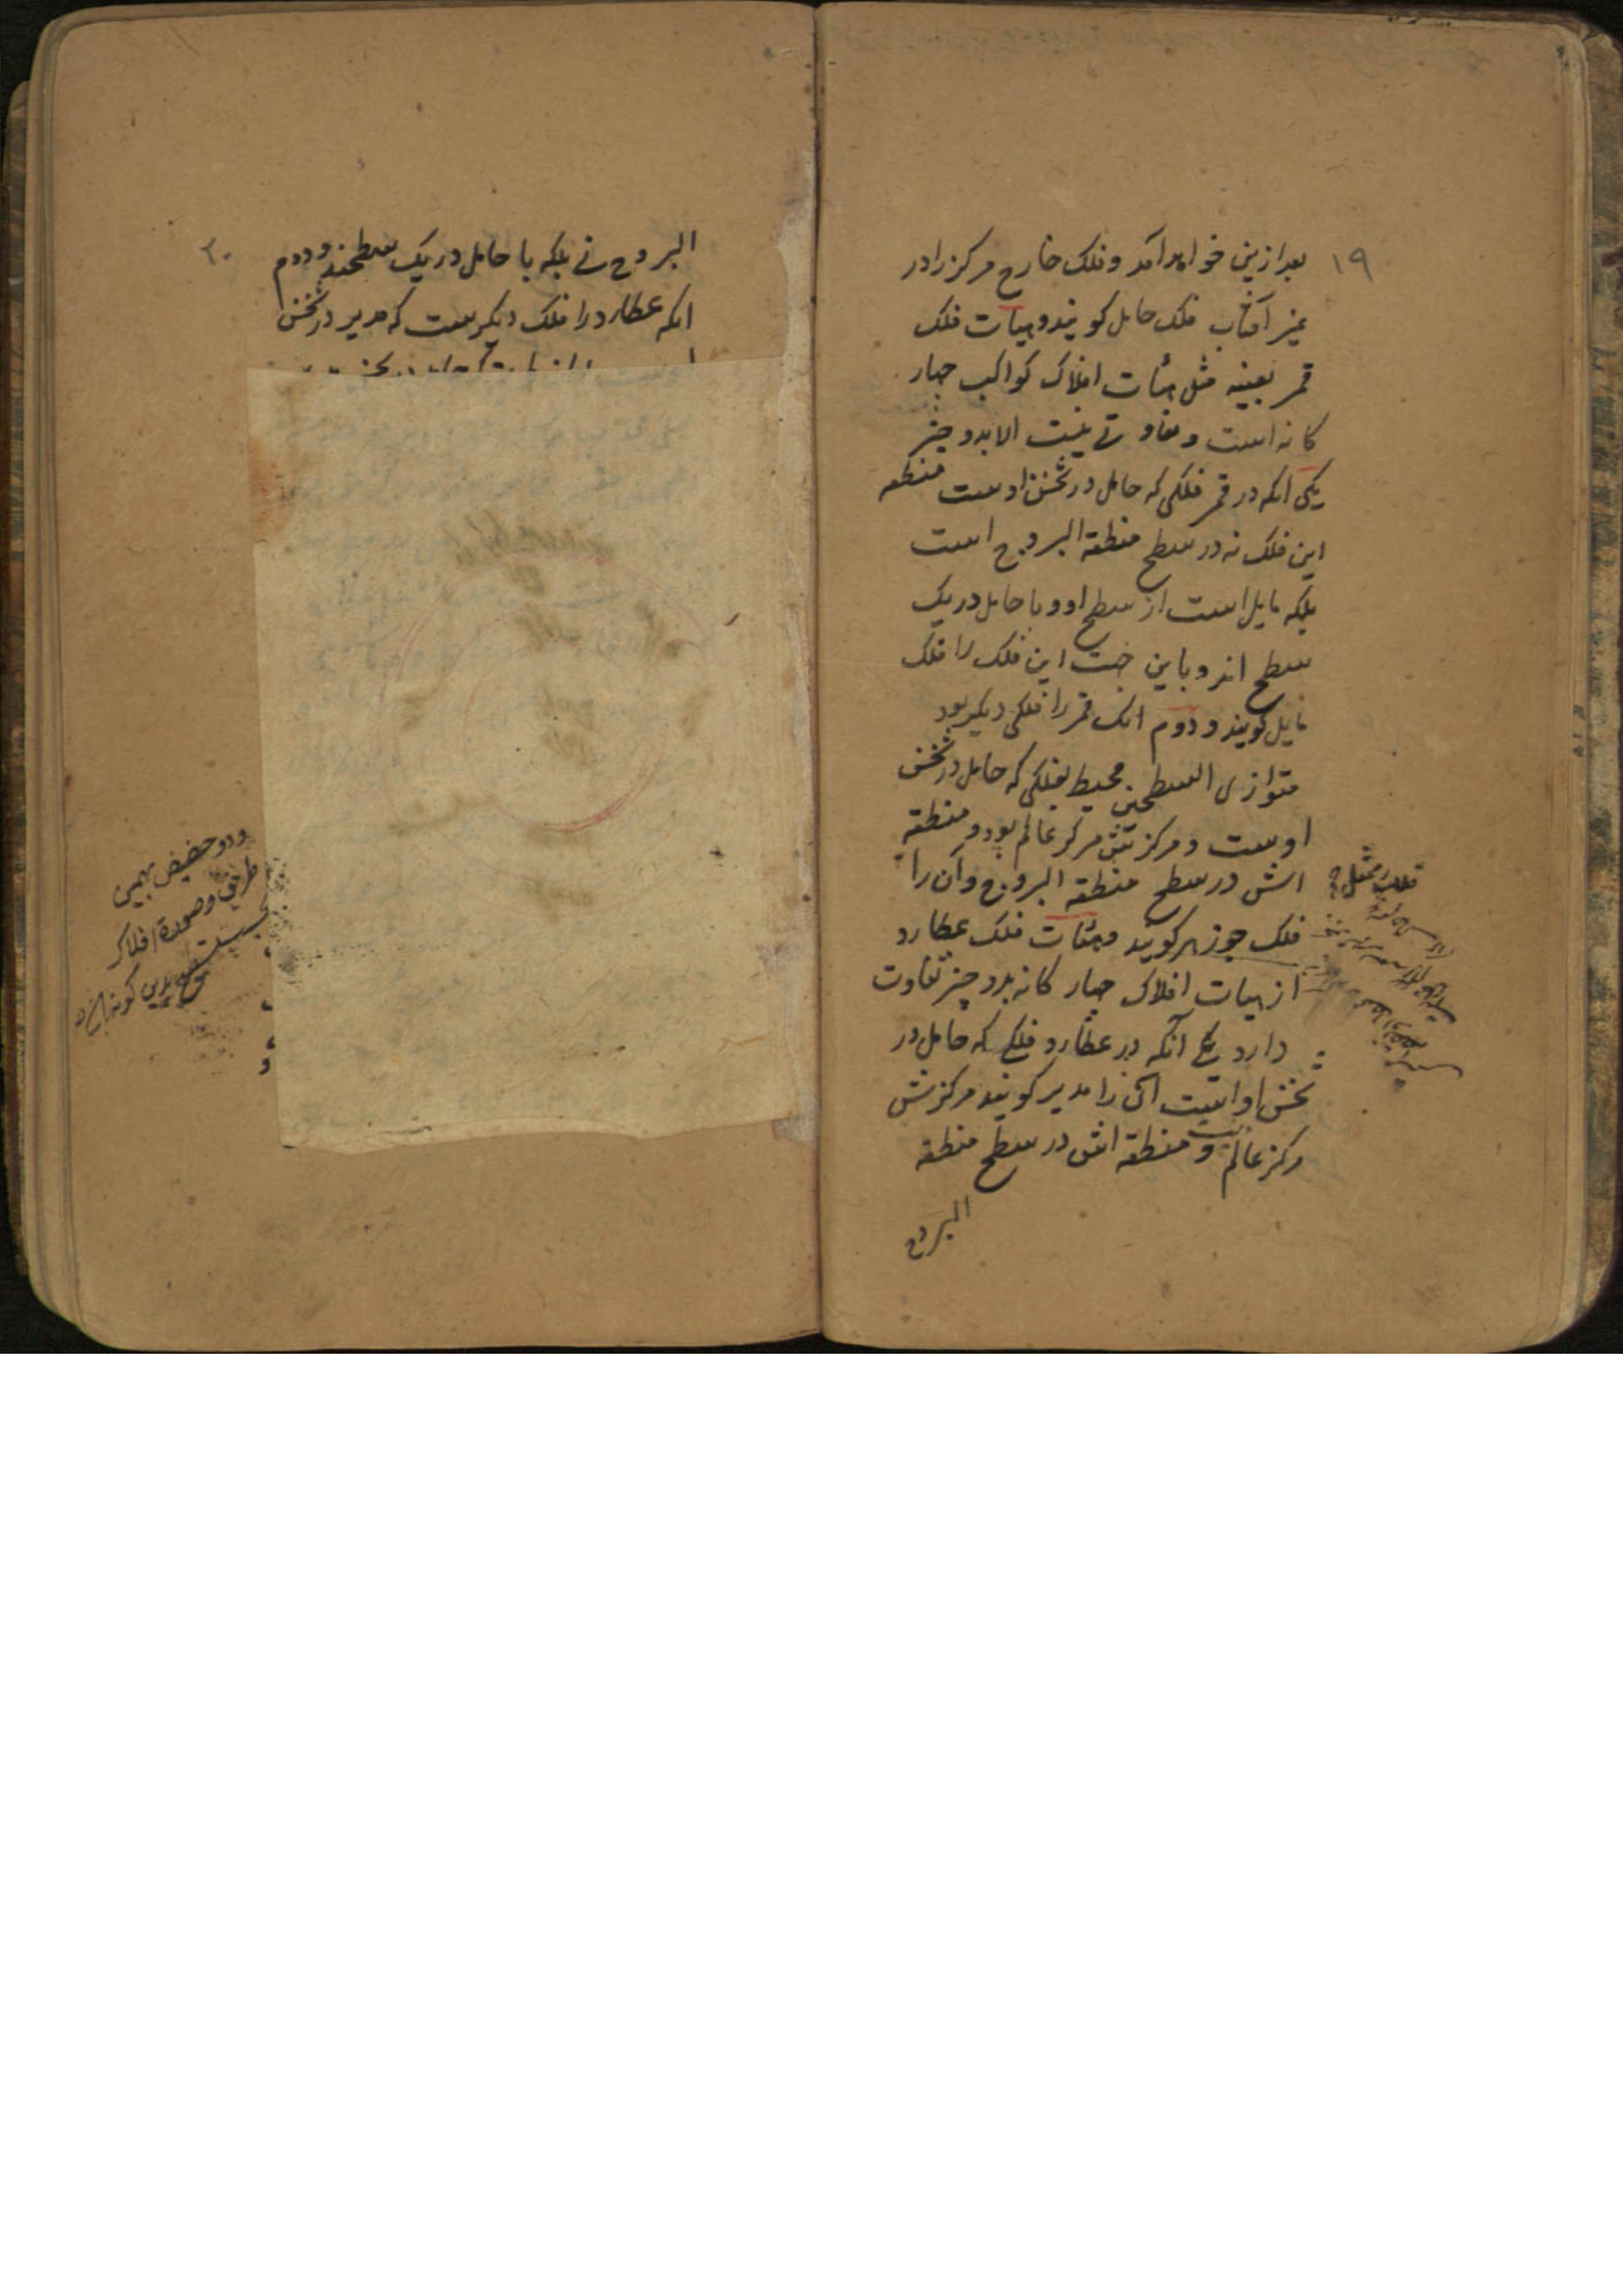 ١٩
بعد ازین خواهد آمد و فلک خارج مرکز را در
غیر آفتاب فلک حامل کویند و هیأت فلک
قمر بعینه مثل هیأت افلاک کواکب چهار
کانه است و تفاوتی نیست الا بدو چیز
یکی انکه در قمر فلکی که حامل در ثخن اوست منطقه
این فلک نه در سطح منطقة البروج است
بلکه مایل است از سطح او و با حامل در یک
سطح اند و باین جهت این فلک را فلک
مایل کویند و دوم انک قمر را فلکی دیکر بود
متوازی السطحین محیط بفلکی که حامل در ثخن
اوست و مرکزش مرکز عالم بود و منطقه
اش در سطح منطقة البروج و آن را
فلک جوزهر کویند و هیأت فلک عطارد
از هیات افلاک چهار کانه بدو چیز تفاوت
دارد یکی آنکه در عطارد فلکی که حامل در
ثخن او است آن را مدیر کویند مرکزش
مرکز عالم نیست و منطقه اش در سطح منطقه
البروج
فلک ممثل
٢٠
البروج نی بلکه با حامل در یک سطحند و دوم
انکه عطارد را فلک دیکرست که مدیر در ثخن
و دو حضیض بهمین
طریق و صورة افلاک